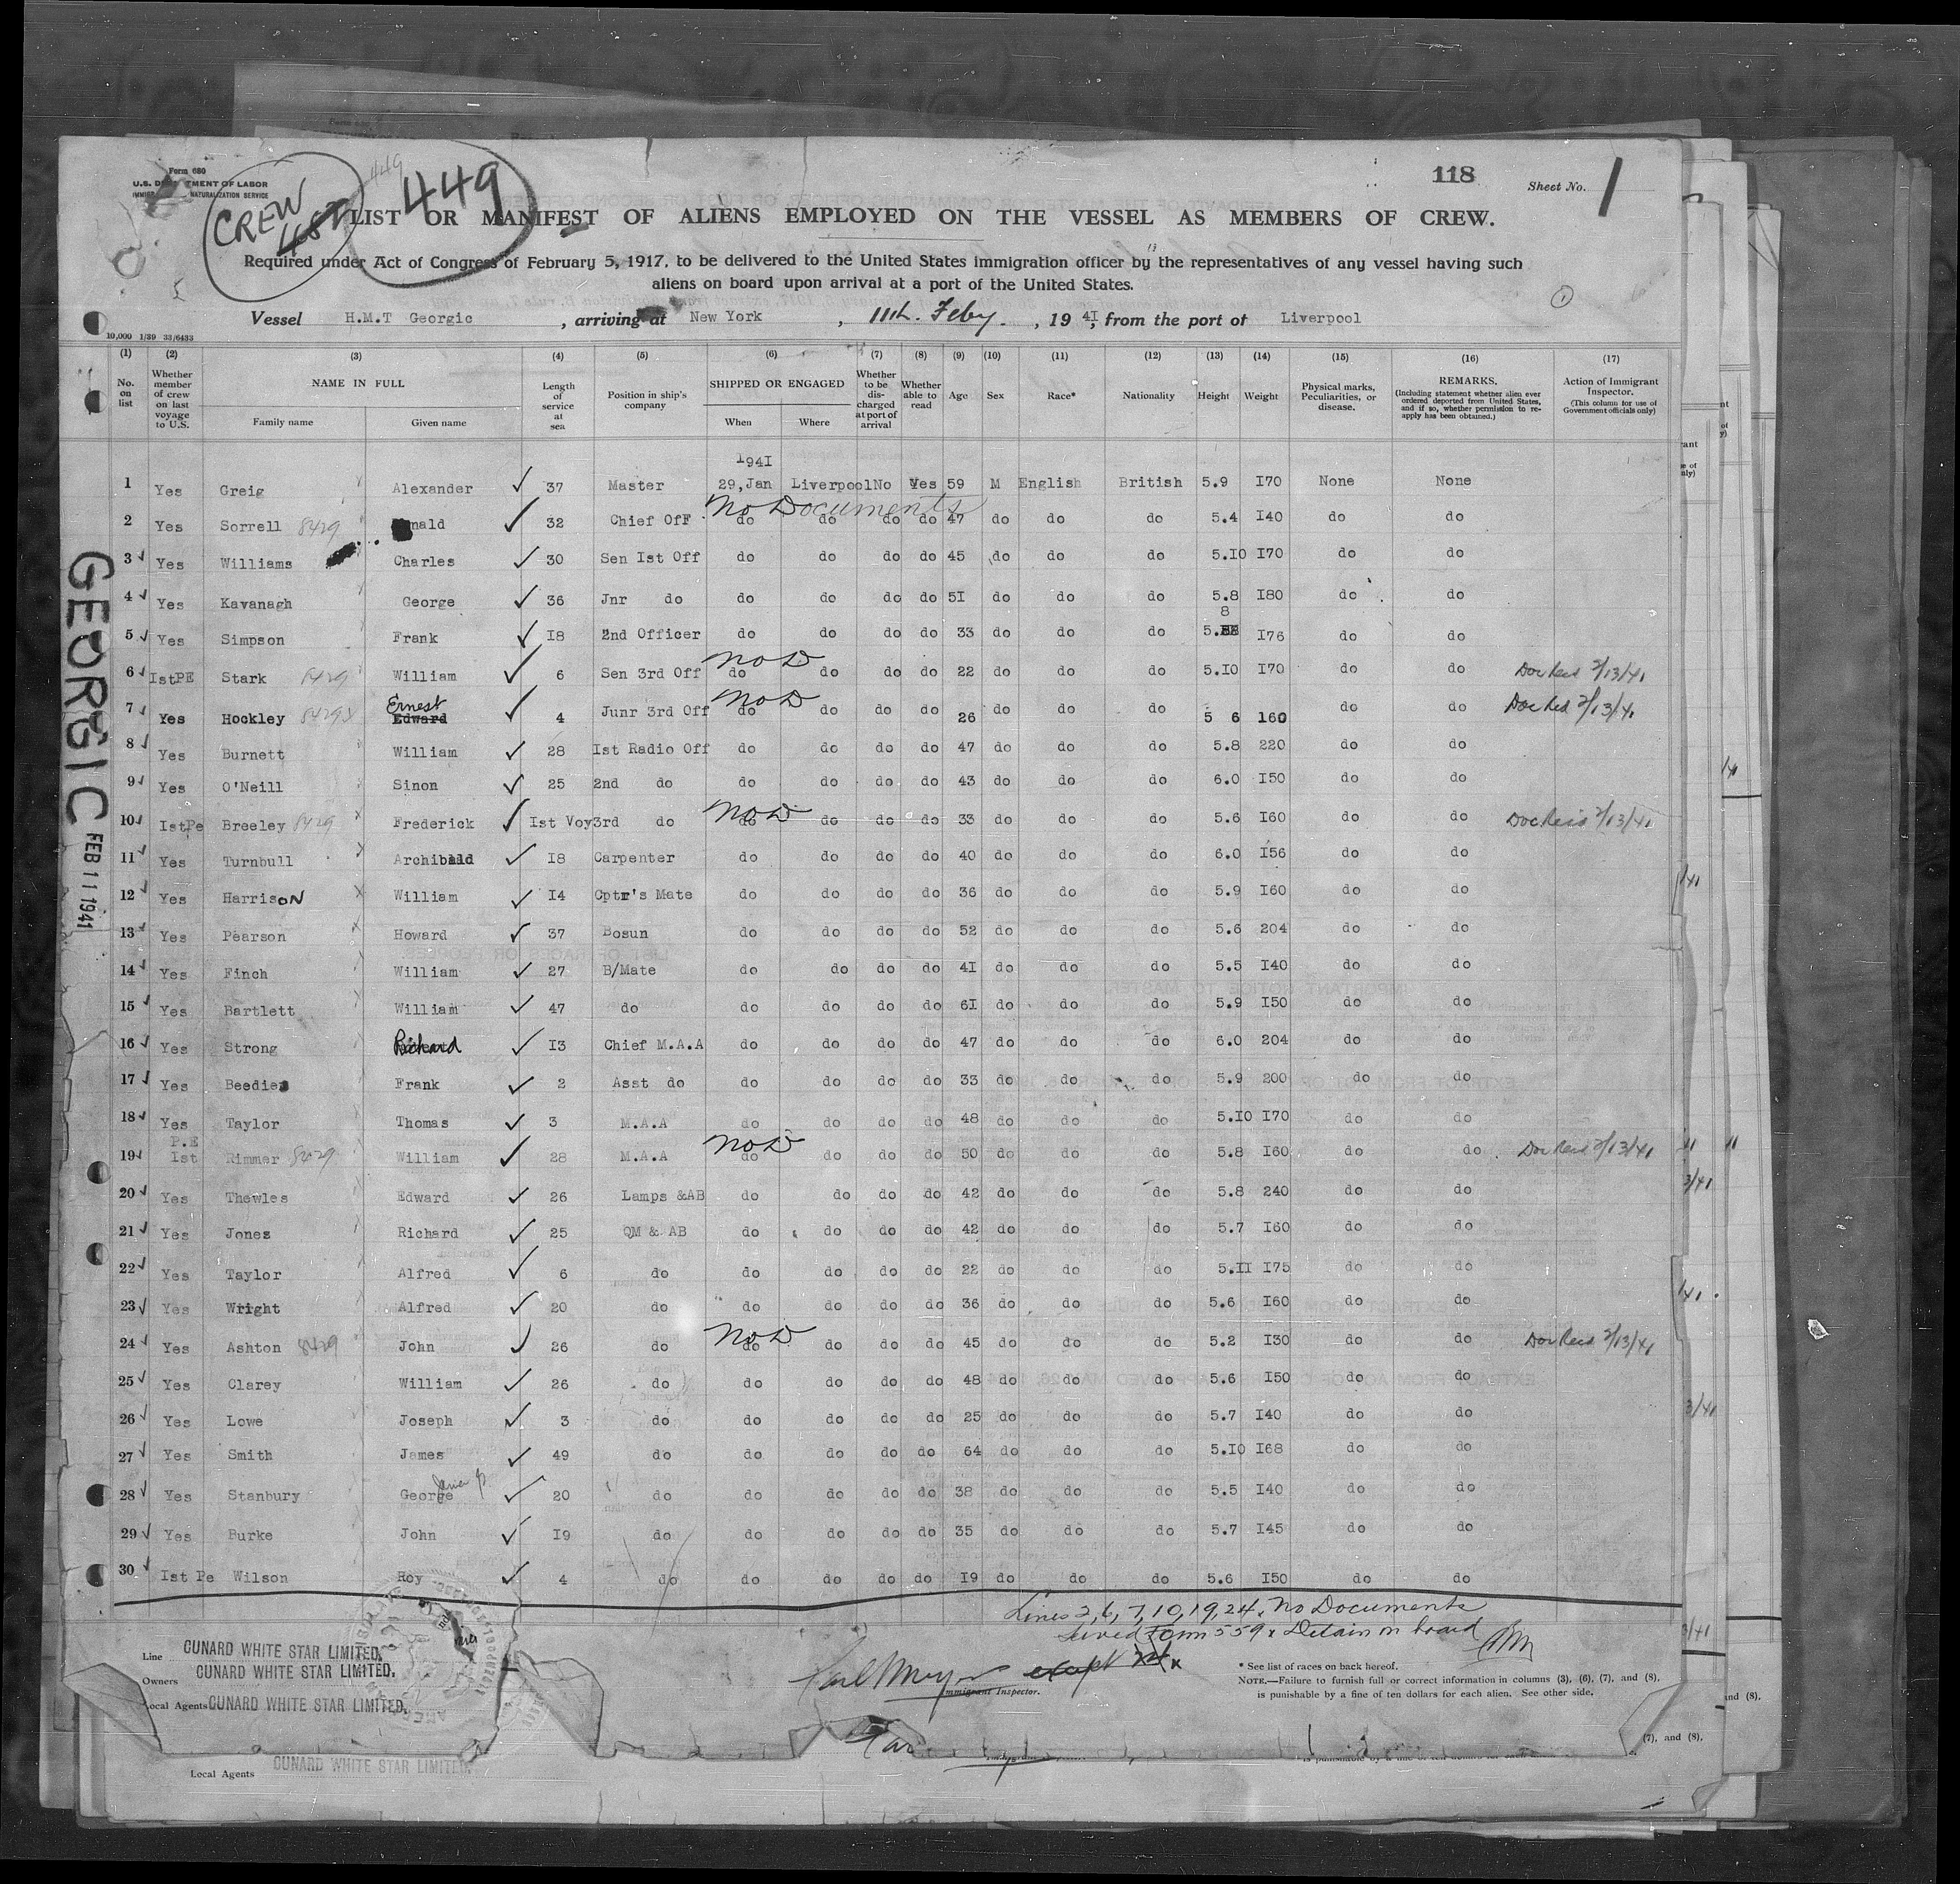 Form 680
U.S. D TMENT OF LABOR
NATURALIZATION SERVICE
CREW
LIST
449
449
118
Sheet No. 1
LIST OR MANIFEST OF ALIENS EMPLOYED ON THE VESSEL AS MEMBERS OF CREW.
Required under Act of Congress of February 5, 1917, to be delivered to the United States immigration officer by the representatives of any vessel having such
aliens on board upon arrival at a port of the United States.
Vessel H.M.T Georgic , arriving at New York , 11th. Feby. , 19 4I, from the port of Liverpool
10,000 1/39 33/6433
(1) (2) (3) (4) (5) (6) (7) (8) (9) (10) (11) (12) (13) (14) (15) (16) (17)
No. on list Whether member of crew on last voyage to U.S. NAME IN FULL Family name Given name Length of service at sea Position in ship's company SHIPPED OR ENGAGED When Where Whether to be discharged at port of arrival Whether able to read Age Sex Race* Nationality Height Weight Physical marks, Peculiarities, or disease. REMARKS, (Including statement whether alien ever ordered deported from United States, and if so, whether permission to re-apply has been obtained.) Action of Immigrant Inspector. (This column for use of Government officials only)
I94I
1 Yes Greig Alexander 37 Master 29,Jan Liverpool No Yes 59 M English British 5.9 I70 None None
No Documents
2 Yes Sorrell 8429 nald 32 Chief Off do do do do 47 do do do 5.4 I40 do do
3 Yes Williams Charles 30 Sen Ist Off do do do do 45 do do do 5.I0 I70 do do
4 Yes Kavanagh George 36 Jnr do do do do do 5I do do do 5.8 I80 do do
8
5 Yes Simpson Frank I8 2nd Officer do do do do 33 do do do 5. I76 do do
6 IstPE Stark 8429 William 6 Sen 3rd Off No D do do do do 22 do do do 5.I0 I70 do do Doc Recd 2/13/41
Ernest
7 Yes Hockley 8429 Edward 4 Junr 3rd Off No D do do do do 26 do do do 5 6 160 do do Doc Recd 2/13/41
8 Yes Burnett William 28 Ist Radio Off do do do do 47 do do do 5.8 220 do do
9 Yes O'Neill Sinon 25 2nd do do do do do 43 do do do 6.0 I50 do do
10 IstPe Breeley 8429 Frederick Ist Voy 3rd do No D do do do do 33 do do do 5.6 I60 do do Doc Recd 2/13/41
11 Yes Turnbull Archibald I8 Carpenter do do do do 40 do do do 6.0 I56 do do
12 Yes HarrisoN William I4 Cptr's Mate do do do do 36 do do do 5.9 I60 do do
13 Yes Pearson Howard 37 Bosun do do do do 52 do do do 5.6 204 do do
14 Yes Finch William 27 B/Mate do do do do 4I do do do 5.5 I40 do do
15 Yes Bartlett William 47 do do do do do 6I do do do 5.9 I50 do do
16 Yes Strong Richard I3 Chief M.A.A do do do do 47 do do do 6.0 204 do do
17 Yes Beedie Frank 2 Asst do do do do do 33 do do do 5.9 200 do do
18 Yes Taylor Thomas 3 M.A.A do do do do 48 do do do 5.I0 I70 do do
P.E
19 Ist Rimmer 8429 William 28 M.A.A No D do do do do 50 do do do 5.8 I60 do do Doc Recd 2/13/41
20 Yes Thowles Edward 26 Lamps &AB do do do do 42 do do do 5.8 240 do do
21 Yes Jones Richard 25 QM & AB do do do do 42 do do do 5.7 I60 do do
22 Yes Taylor Alfred 6 do do do do do 22 do do do 5.II I75 do do
23 Yes Wright Alfred 20 do do do do do 36 do do do 5.6 I60 do do
24 Yes Ashton 8429 John 26 do No D do do do do 45 do do do 5.2 I30 do do Doc Recd 2/13/41
25 Yes Clarey William 26 do do do do do 48 do do do 5.6 I50 do do
26 Yes Lowe Joseph 3 do do do do do 25 do do do 5.7 I40 do do
27 Yes Smith James 49 do do do do do 64 do do do 5.I0 I68 do do
28 Yes Stanbury George 20 do do do do do 38 do do do 5.5 I40 do do
29 Yes Burke John I9 do do do do do 35 do do do 5.7 I45 do do
30 Ist Pe Wilson Roy 4 do do do do do I9 do do do 5.6 I50 do do
GEORGIC FEB 11 1941
Lines 2, 6, 7, 10, 19, 24, No Documents
Served Form 559 x Detain on board
Line CUNARD WHITE STAR LIMITED.
Owners CUNARD WHITE STAR LIMITED.
Local Agents CUNARD WHITE STAR LIMITED.
Immigrant Inspector.
* See list of races on back hereof.
NOTE.—Failure to furnish full or correct information in columns (3), (6), (7), and (8),
is punishable by a fine of ten dollars for each alien. See other side.
and (8).
(7), and (8),
Local Agents CUNARD WHITE STAR LIMITED.